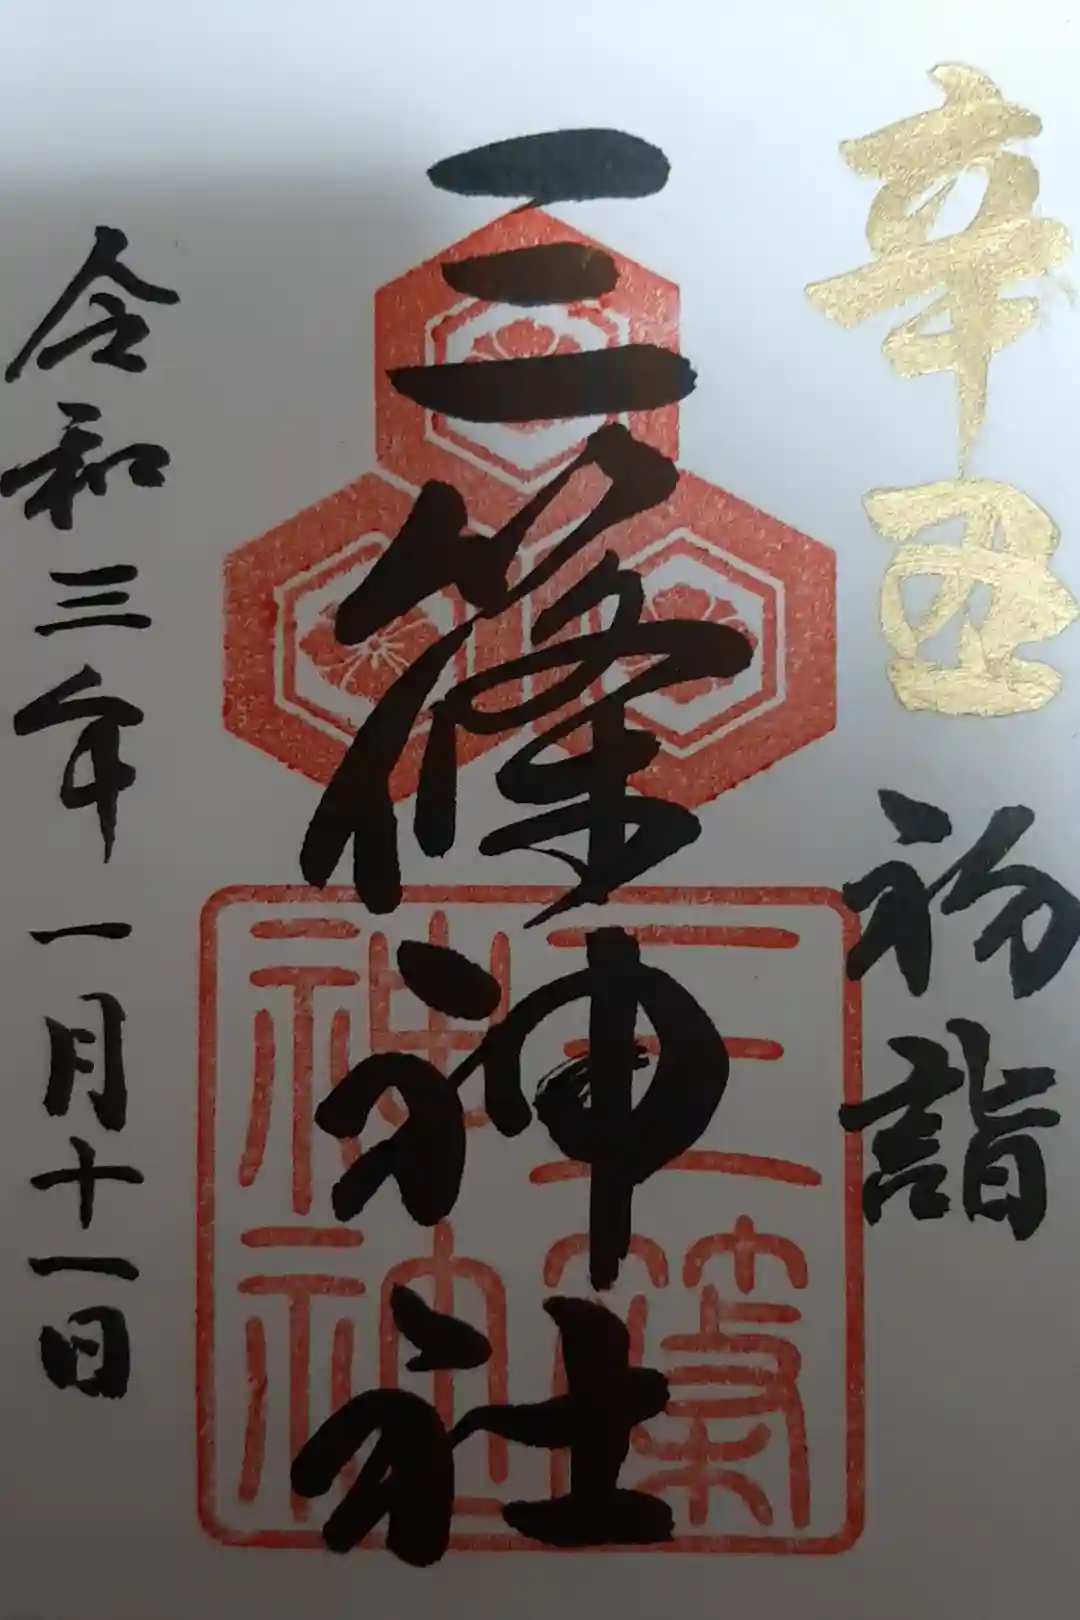 辛丑 初詣
三篠神社
令和三年一月十一日
三篠
神社